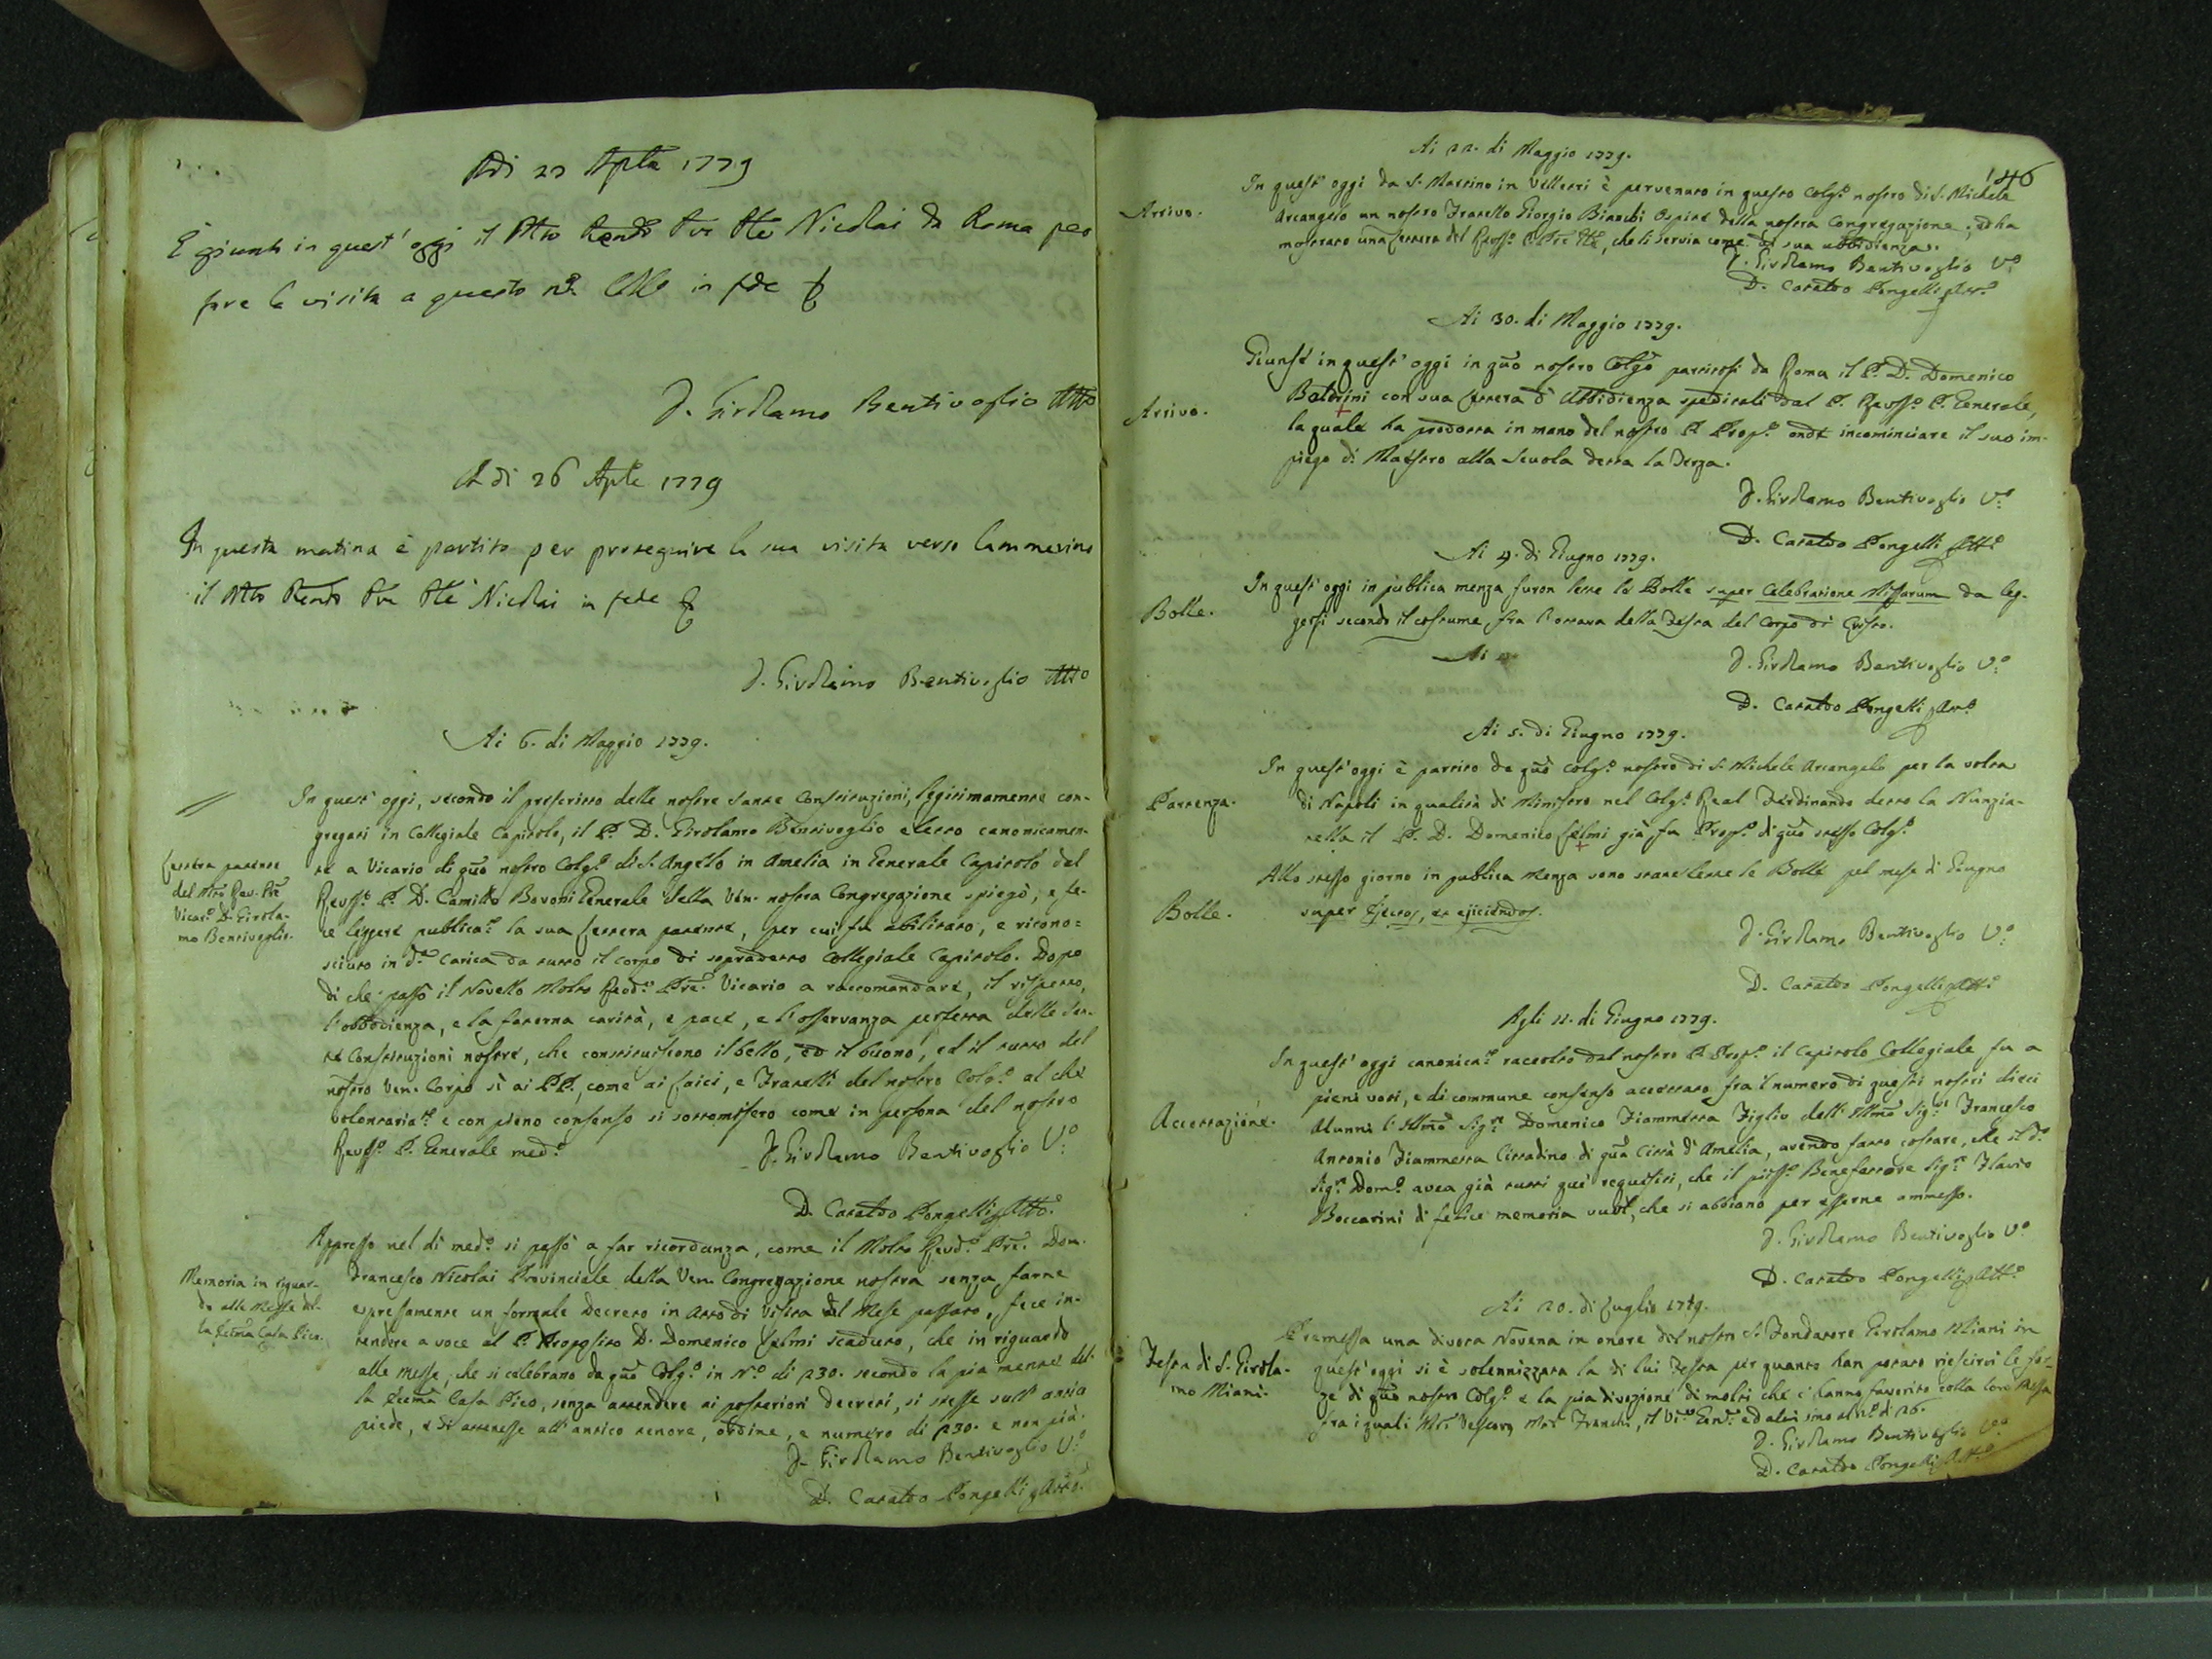 Adi 23 Aple 1779
È giunto in quest' oggi il Mto Rendo Pre Ple Nicolai da Roma per
fare la visita a questo no Collo in fede
D. Girolamo Bentivoglio Atto
A di 26 Aple 1779
In questa matina è partito per proseguire la sua visita verso Cammerino
il Mto Rendo Pre Ple Nicolai in fede
D. Girolamo Bentivoglio Atto
Ai 6. di Maggio 1779.
In quest' oggi, secondo il prescritto delle nostre Sante Constituzioni, legitimamente con-
gregati in Collegiale Capitolo, il P. D. Girolamo Bentivoglio eletto canonicamen-
te a Vicario di quo nostro Colgo di S. Angelo in Amelia in Generale Capitolo dal
Revsso P. D. Camillo Bovoni Generale della Ven. nostra Congregazione spiegò, e fe-
ce leggere publicate la sua lettera patente, per cui fu abilitato, e ricono=
sciuto in da Carica da tutto il corpo di sopradetto Collegiale Capitolo. Dopo
di che passò il Novello Molto Revdo Pre Vicario a raccomandare, il rispetto,
l'obbedienza, e la fraterna carità, e pace, e l'osservanza perfetta delle San-
te Constituzioni nostre, che constituiscono il bello, ed il buono, ed il tutto del
nostro Ven. Corpo sì ai PP., come ai Laici, e Fratelli del nostro Colgo al che
volontariate e con pieno consenso si sottomisero come in persona del nostro
Revsso P. Generale medo
Lettera patente
del Mto Rev. Pre
Vicaro D. Girola-
mo Bentivoglio.
D. Girolamo Bentivoglio Vo
D. Cataldo Pongelli Atto
Appresso nel dì medo si passò a far ricordanza, come il Molto Revdo Pre Don
Francesco Nicolai Provinciale della Ven. Congregazione nostra senza farne
espressamente un formale Decreto in atto di Visita del Mese passato, fece in-
tendere a voce al P. Proposito D. Domenico Celmi scaduto, che in riguardo
alle Messe, che si celebrano da quo Colgo in No di 230. secondo la pia mente del-
la Casa Pico, senza attendere ai posteriori decreti, si stesse sull' antico
piede, e di attenesse all' antico tenore, ordine, e numero di 230. e non più.
Memoria in riguar-
do alle Messe del-
la Casa Pico.
D. Girolamo Bentivoglio Vo
D. Cataldo Pongelli Atto
146
Ai 22. di Maggio 1779.
Arrivo.
In quest' oggi da S. Martino in Velletri è pervenuto in questo Colgo nostro di S. Michele
Arcangelo un nostro Fratello Giorgio Bianchi Ospite della nostra Congregazione, ed ha
mostrato una lettera del Revsso P. Pre Gle, che li servia come di sua ubbidienza.
D. Girolamo Bentivoglio Vo
D. Cataldo Pongelli Atto
Ai 30. di Maggio 1779.
Arrivo.
Giunse in quest' oggi in quo nostro Colgo partitosi da Roma il P. D. Domenico
con sua lettera d' Ubbidienza speditali dal P. Revsso P. Generale,
la quale ha prodotta in mano del nostro P. Propo onde incominciare il suo im-
piego di Maestro alla Scuola detta la Terza.
D. Girolamo Bentivoglio Vo
D. Cataldo Pongelli Atto
Ai 4. di Giugno 1779.
Bolle.
In quest' oggi in publica menza furon lette le Bolle super Celebratione Missarum da leg-
gersi secondo il costume fra l'ottava della Festa del Corpo di Cristo.
Ai
D. Girolamo Bentivoglio Vo
D. Cataldo Pongelli Atto
Ai 5. di Giugno 1779.
Partenza.
In quest' oggi è partito da quo Colgo nostro di S. Michele Arcangelo per la volta
di Napoli in qualità di Ministro nel Colgo Real Ferdinando detto la Nunzia-
tella il P. D. Domenico Celmi già fu Propo di quo stesso Colgo
Bolle.
Allo stesso giorno in publica Menza sono state lette le Bolle pel mese di Giugno
super Ejectos, et ejiciendos.
D. Girolamo Bentivoglio Vo
D. Cataldo Pongelli Atto
Agli 11. di Giugno 1779.
Accettazione.
In quest' oggi canonicate raccolto dal nostro P. Propo il Capitolo Collegiale fu a
pieni voti, e di commune consenso accettato fra il numero di questi nostri dieci
Alunni l'Illmo Sigre Domenico Fiammetta Figlio dell' Illmo Sigre Francesco
Antonio Fiammetta Cittadino di qua Città d' Amelia, avendo fatto costare, che il do
Sigre Domo avea già tutti que' requisiti, che il piisso Benefattore Sigre Flavio
Boccarini di felice memoria vuol, che si abbiano per esserne ammesso.
D. Girolamo Bentivoglio Vo
D. Cataldo Pongelli Atto
Ai 20. di Luglio 1779.
Festa di S. Girola-
mo Miani.
Premessa una divota Novena in onore del nostro S. Fondatore Girolamo Miani in
quest' oggi si è solennizzata la di lui Festa per quanto han potuto riescirvi le for-
ze di quo nostro Colgo e la pia divozione di molti che ci hanno favorito colla loro Messa
fra i quali Mor Vescovo Mor Franchi, il Vico Gene ed altri sino al no di 26.
D. Girolamo Bentivoglio Vo
D. Cataldo Pongelli Atto